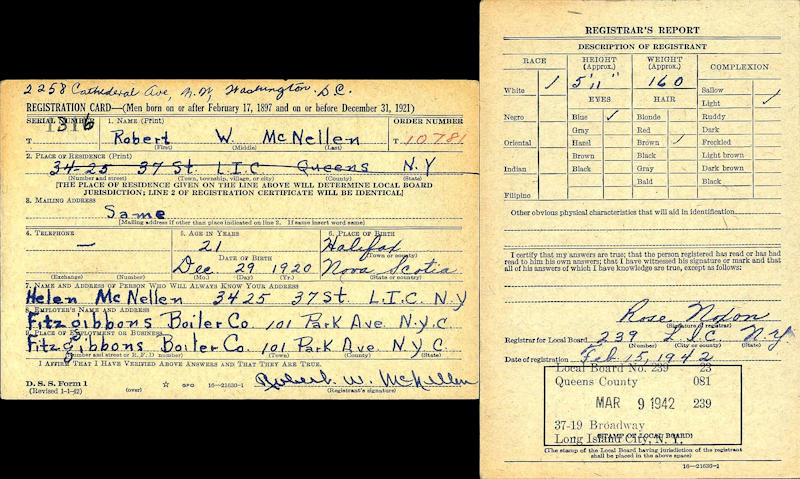 2258 Cathederal Ave, N.W. Washington. D.C.
REGISTRATION CARD—(Men born on or after February 17, 1897 and on or before December 31, 1921)
SERIAL NUMBER
1. NAME (Print)
ORDER NUMBER
T 1316
Robert W. McNellen
T 10781
(First) (Middle) (Last)
2. PLACE OF RESIDENCE (Print)
34-25 37 St. L.I.C. Queens N.Y
(Number and street) (Town, township, village, or city) (County) (State)
[THE PLACE OF RESIDENCE GIVEN ON THE LINE ABOVE WILL DETERMINE LOCAL BOARD
JURISDICTION; LINE 2 OF REGISTRATION CERTIFICATE WILL BE IDENTICAL]
3. MAILING ADDRESS
Same
[Mailing address if other than place indicated on line 2. If same insert word same]
4. TELEPHONE
5. AGE IN YEARS
6. PLACE OF BIRTH
—
21
Halifax
DATE OF BIRTH
(Town or county)
Dec. 29 1920
Nova Scotia
(Exchange) (Number)
(Mo.) (Day) (Yr.)
(State or country)
7. NAME AND ADDRESS OF PERSON WHO WILL ALWAYS KNOW YOUR ADDRESS
Helen McNellen 3425 37 St. L.I.C. N.Y
8. EMPLOYER'S NAME AND ADDRESS
Fitzgibbons Boiler Co. 101 Park Ave. N.Y.C
9. PLACE OF EMPLOYMENT OR BUSINESS
Fitzgibbons Boiler Co. 101 Park Ave N.Y.C.
(Number and street or R. F. D. number) (Town) (County) (State)
I AFFIRM THAT I HAVE VERIFIED ABOVE ANSWERS AND THAT THEY ARE TRUE.
Robert. W. McNellen
D. S. S. Form 1
(Revised 1-1-42)
(over)
☆ GPO 16—21630-1
(Registrant's signature)
REGISTRAR'S REPORT
DESCRIPTION OF REGISTRANT
RACE
HEIGHT (Approx.)
WEIGHT (Approx.)
COMPLEXION
White ✓
5'11"
160
Sallow
EYES
HAIR
Light ✓
Negro
Blue ✓
Blonde
Ruddy
Gray
Red
Dark
Oriental
Hazel
Brown ✓
Freckled
Brown
Black
Light brown
Indian
Black
Gray
Dark brown
Bald
Black
Filipino
Other obvious physical characteristics that will aid in identification
I certify that my answers are true; that the person registered has read or has had
read to him his own answers; that I have witnessed his signature or mark and that
all of his answers of which I have knowledge are true, except as follows:
Rose Nolon
(Signature of registrar)
Registrar for Local Board 239 L.I.C. N.Y
(Number) (City or county) (State)
Date of registration Feb 15, 1942
Local Board No. 239 23
Queens County 081
MAR 9 1942 239
37-19 Broadway
Long Island City, N. Y.
(STAMP OF LOCAL BOARD)
(The stamp of the Local Board having jurisdiction of the registrant
shall be placed in the above space)
16—21630-1